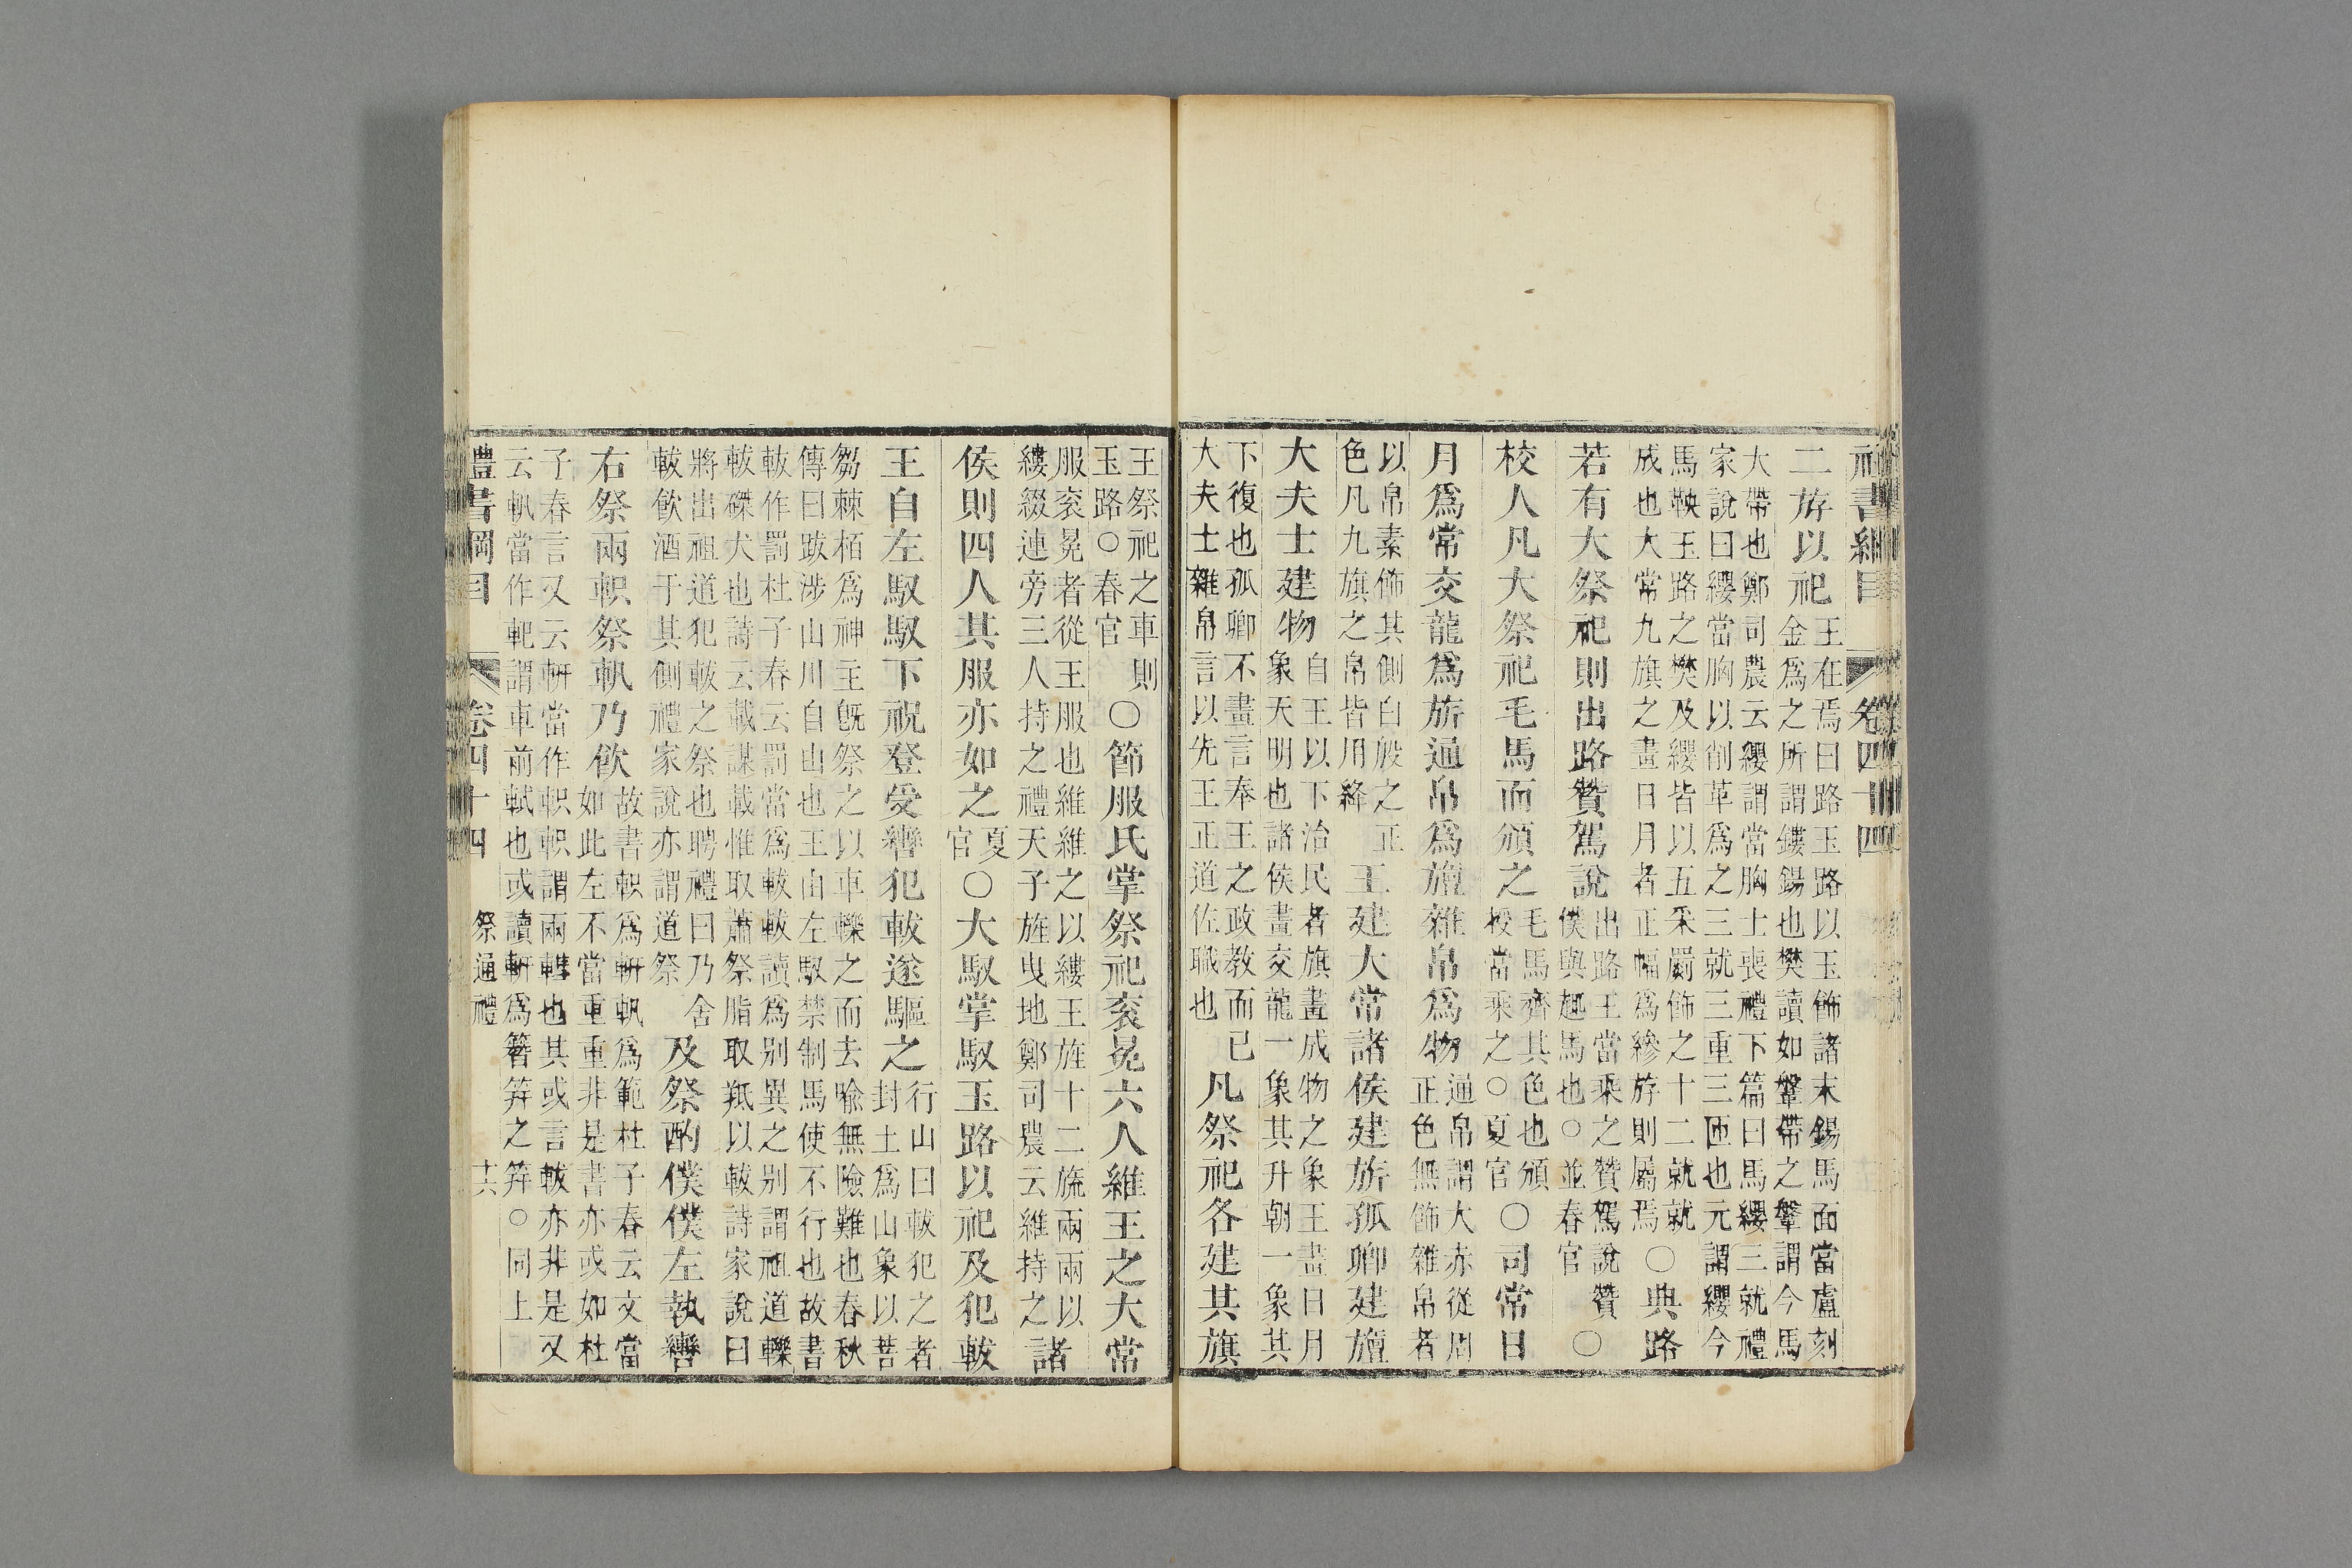 禮書綱目 卷四十四
二斿以祀王在焉曰路玉路以玉飾諸末鍚馬面當盧刻
金爲之所謂鏤鍚也樊讀如鞶帶之鞶謂今馬
大帶也鄭司農云纓謂當胸士喪禮下篇曰馬纓三就禮
家說曰纓當胸以削革爲之三就三重三匝也元謂纓今
馬鞅玉路之樊及纓皆以五采罽飾之十二就就
成也大常九旗之畫日月者正幅爲縿斿則屬焉
〇典路
若有大祭祀則出路贊駕說
出路王當乘之贊駕說贊
僕與趣馬也○並春官
〇
校人凡大祭祀毛馬而頒之
毛馬齊其色也頒
授當乘之○夏官
〇司常日
月爲常交龍爲旂通帛爲旜雜帛爲物
通帛謂大赤從周
正色無飾雜帛者
以帛素飾其側白殷之正
色凡九旗之帛皆用絳
王建大常諸侯建旂孤卿建旜
大夫士建物
自王以下治民者旗畫成物之象王畫日月
象天明也諸侯畫交龍一象其升朝一象其
下復也孤卿不畫言奉王之政教而已
大夫士雜帛言以先王正道佐職也
凡祭祀各建其旗
王祭祀之車則
玉路○春官
〇節服氏掌祭祀衮冕六人維王之大常
服衮冕者從王服也維維之以縷王旌十二旒兩兩以
縷綴連旁三人持之禮天子旌曳地鄭司農云維持之
諸
侯則四人其服亦如之
夏
官
〇大馭掌馭玉路以祀及犯軷
王自左馭馭下祝登受轡犯軷遂驅之
行山曰軷犯之者
封土爲山象以菩
芻棘柏爲神主旣祭之以車轢之而去喩無險難也春秋
傳曰跋涉山川自由也王由左馭禁制馬使不行也故書
軷作罰杜子春云罰當爲軷軷讀爲别異之别謂祖道轢
軷磔犬也詩云載謀載惟取蕭祭脂取羝以軷詩家說曰
將出祖道犯軷之祭也聘禮曰乃舍
軷飮酒于其側禮家說亦謂道祭
及祭酌僕僕左執轡
右祭兩軹祭軓乃飮
故書軹爲䡓軓爲範杜子春云文當
如此左不當重重非是書亦或如杜
子春言又云䡓當作軹軹謂兩轊也其或言軷亦非是又
云軓當作軓謂車前軾也或讀䡓爲簪笄之笄○同上
禮書綱目 卷四十四 祭通禮 十六